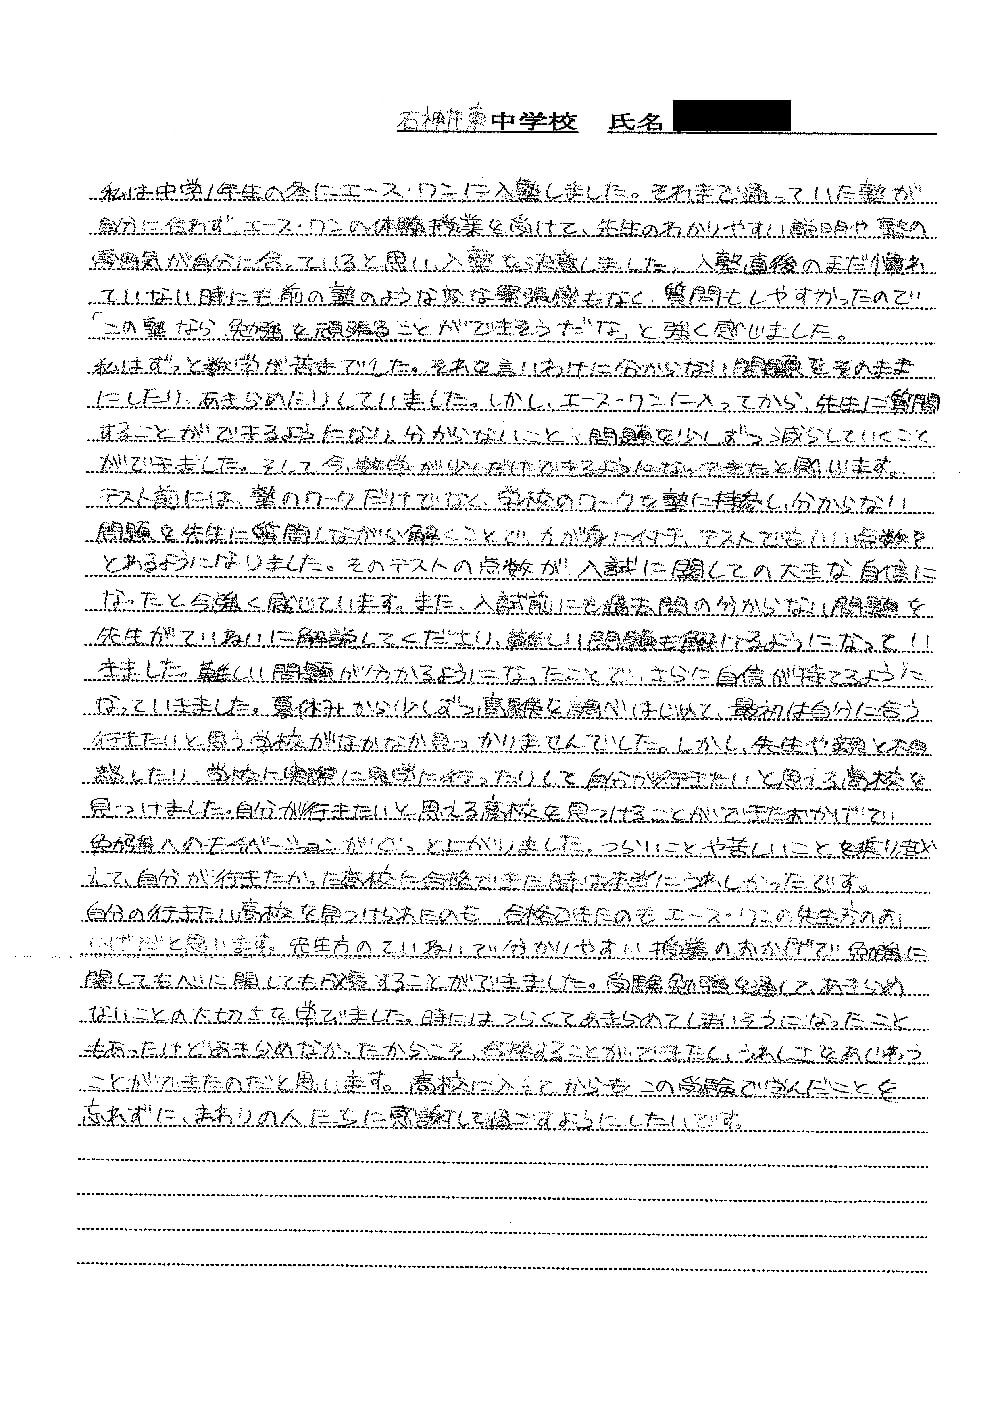 石神井東中学校 氏名
私は中学1年生の冬にエース・ワンに入塾しました。それまで通っていた塾が
自分に合わず、エース・ワンの体験授業を受けて、先生のわかりやすい説明や塾の
雰囲気が自分に合っていると思い、入塾を決意しました。入塾直後のまだ慣れ
ていない時にも前の塾のような変な緊張感もなく、質問もしやすかったので
「この塾なら勉強を頑張ることができそうだな」と強く感じました。
私はずっと数学が苦手でした。それを言いわけに分からない問題をそのまま
にしたり、あきらめたりしていました。しかし、エース・ワンに入ってから、先生に質問
することができるようになり、分からないこと、問題を少しずつ減らしていくこと
ができました。そして今、数学が少しだけできるようになってきたと感じます。
テスト前には、塾のワークだけでなく、学校のワークを塾に持参し、分からない
問題を先生に質問しながら解くことで、力が身に付き、テストでもいい点数を
とれるようになりました。そのテストの点数が入試に関しての大きな自信に
なったと今強く感じています。また、入試前にも過去問の分からない問題を
先生がていねいに解説してくださり、難しい問題も解けるようになってい
きました。難しい問題が分かるようになったことで、さらに自信が持てるように
なっていきました。夏休みから少しずつ高校を調べはじめて、最初は自分に合う
行きたいと思う学校がなかなか見つかりませんでした。しかし、先生や親と相
談したり、学校に実際に見学に行ったりして自分が行きたいと思える高校を
見つけました。自分が行きたいと思える高校を見つけることができたおかげで
勉強へのモチベーションがぐっと上がりました。つらいことや苦しいことを乗り越
えて、自分が行きたかった高校に合格できた時は本当にうれしかったです。
自分の行きたい高校を見つけられたのも、合格できたのもエース・ワンの先生方のお
かげだと思います。先生方のていねいで分かりやすい授業のおかげで勉強に
関しても心に関しても成長することができました。受験勉強を通して、あきらめ
ないことの大切さを学びました。時にはつらくてあきらめてしまいそうになったこと
もあったけどあきらめなかったからこそ、合格することができたし、うれしさをあじわう
ことができたのだと思います。高校に入ってからもこの受験で学んだことを
忘れずに、まわりの人たちに感謝して過ごすようにしたいです。